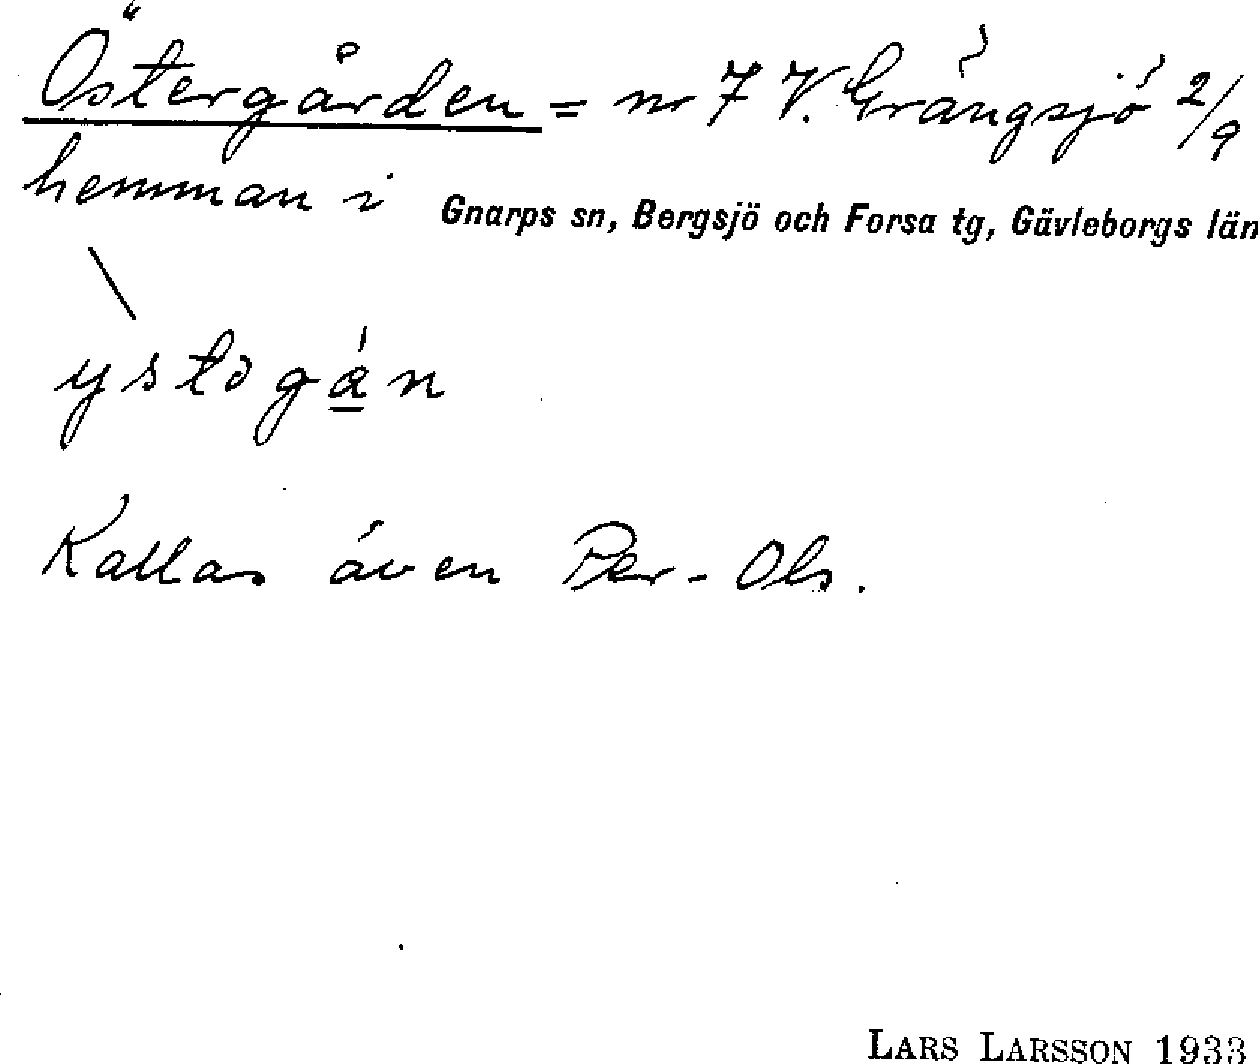 Östergården = nr 7 V. Grängsjö 2/9
hemman i Gnarps sn, Bergsjö och Forsa tg, Gävleborgs län
\
ystəgá̲n
Kallas även Per-Ols.
LARS LARSSON 1933